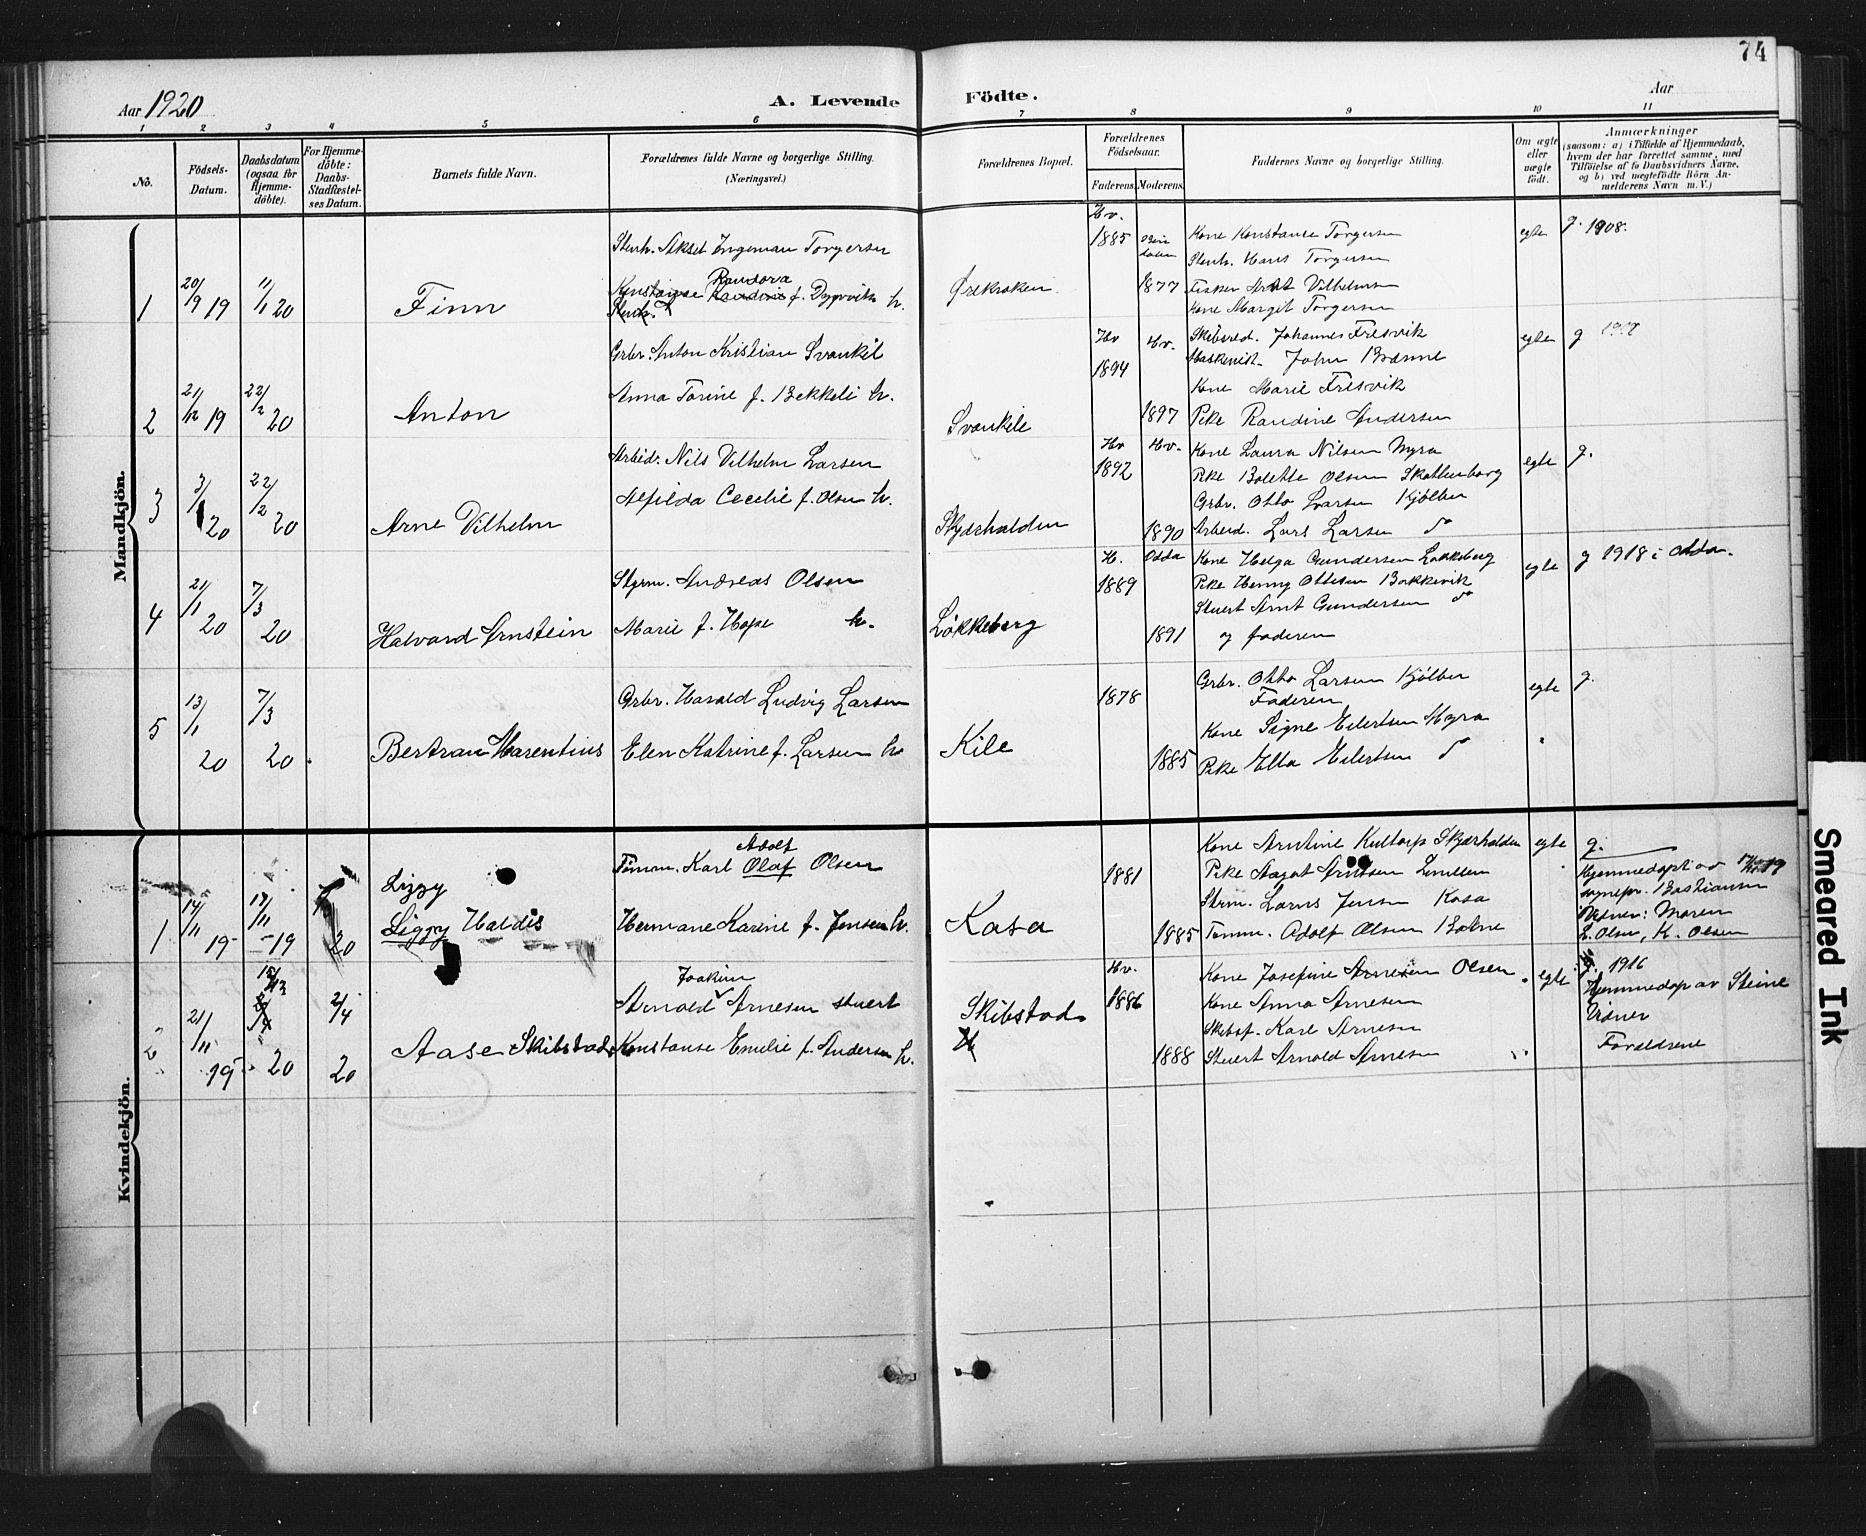 74
Aar 1920
A. Levende Födte.
Aar
1 2 3 4 5 6 7 8 9 10 11
No.
Födsels-Datum.
Daabsdatum (ogsaa for Hjemme-döbte).
For Hjemme-döbte: Daabs-Stadfæstel-ses Datum.
Barnets fulde Navn.
Forældrenes fulde Navne og borgerlige Stilling. (Næringsvei.)
Forældrenes Bopæl.
Forældrenes Födselsaar.
Faderens. Moderens.
Faddernes Navne og borgerlige Stilling.
Om ægte eller uægte födt.
Anmærkninger
(saasom: a) i Tilfælde af Hjemmedaab, hvem der har forrettet samme, med Tilföielse af to Daabsvidners Navne, og b) ved uægtefödte Börn An-melderens Navn m. V.)
Mandkjön.
1
20/9 19
11/1 20
Finn
Stenh. Aksel Ingeman Torgersen
Randova
Konstanse f. h.
Ørekroken
Hv.
1885
1877
Kone Konstanse Torgersen
Stenh. Hans Torgersen
Fisker Arnt Vilhelmsen
Kone Margit Torgersen
egte
g. 1908.
2
21/12 19
22/2 20
Anton
Grbr. Anton Kristian Svankil
Anna Torine f. Bekkeli h.
Svankile
Hv
1894
Hv.
1897
Johannes Fresvik
John Brænne
Kone Marie Fresvik
Pike Randine Andersen
egte
g
3
3/1 20
22/2 20
Arne Vilhelm
Arbeid. Nils Vilhelm Larsen
Alfilda Cecelie f. Olsen h.
Skjærhalden
Hv
1892
Hv.
1890
Kone Laura Nilsen Myra
Pike Bolette Olsen Skattenborg
Grbr. Otto Larsen Kjølbu
Arbeid. Lars Larsen do
egte
g.
4
21/1 20
7/3 20
Halvard Arnstein
Styrm. Andreas Olsen
Marie f. Hope h.
Løkkeberg
H.
1889
Odda
1891
Kone Helga Gundersen Løkkeberg
Pike Henny Ottesen Bakkevik
Stuert Arnt Gundersen do
og faderen
egte
g 1918 i Odda.
5
13/1 20
7/3 20
Bertran Marentius
Grbr. Harald Ludvig Larsen
Elen Katrine f. Larsen h
Kile
1878
1885
Grbr. Otto Larsen Kjølbu
Faderen
Kone Signe Eilertsen Myra
Pike Ella Eilertsen do
egte
g.
Kvindekjön.
1
14/11 19
17/11 19
20
Lizzy
Liggy Haldis
Adolf
Tømm. Karl Olaf Olsen
Hermane Karine f. Jensen h.
Kasa
1881
1885
Kone Arntine Kultorp Skjærhalden
Pike Aagot Arntsen
Strm. Larns Jensen Kasa
Tømm. Adolf Olsen Bølne
egte
g.
Hjemmedøpt av
sognepr. Bastiansen
Vidner: Maren
L. Olsen, K. Olsen
2
21/11 19
20
2/4 20
Aase Skibstad
Joakim
Arnold Arnesen stuert
Konstanse Emilie f. Andersen h.
Skibstad
Hv.
1886
1888
Kone Josefine Arnesen Olsen
Kone Anna Arnesen
Skibsf. Karl Arnesen
Stuert Arnold Arnesen
egte
g. 1916
Hjemmedøp av Steine
Vidner
Forældrene
Smeared Ink